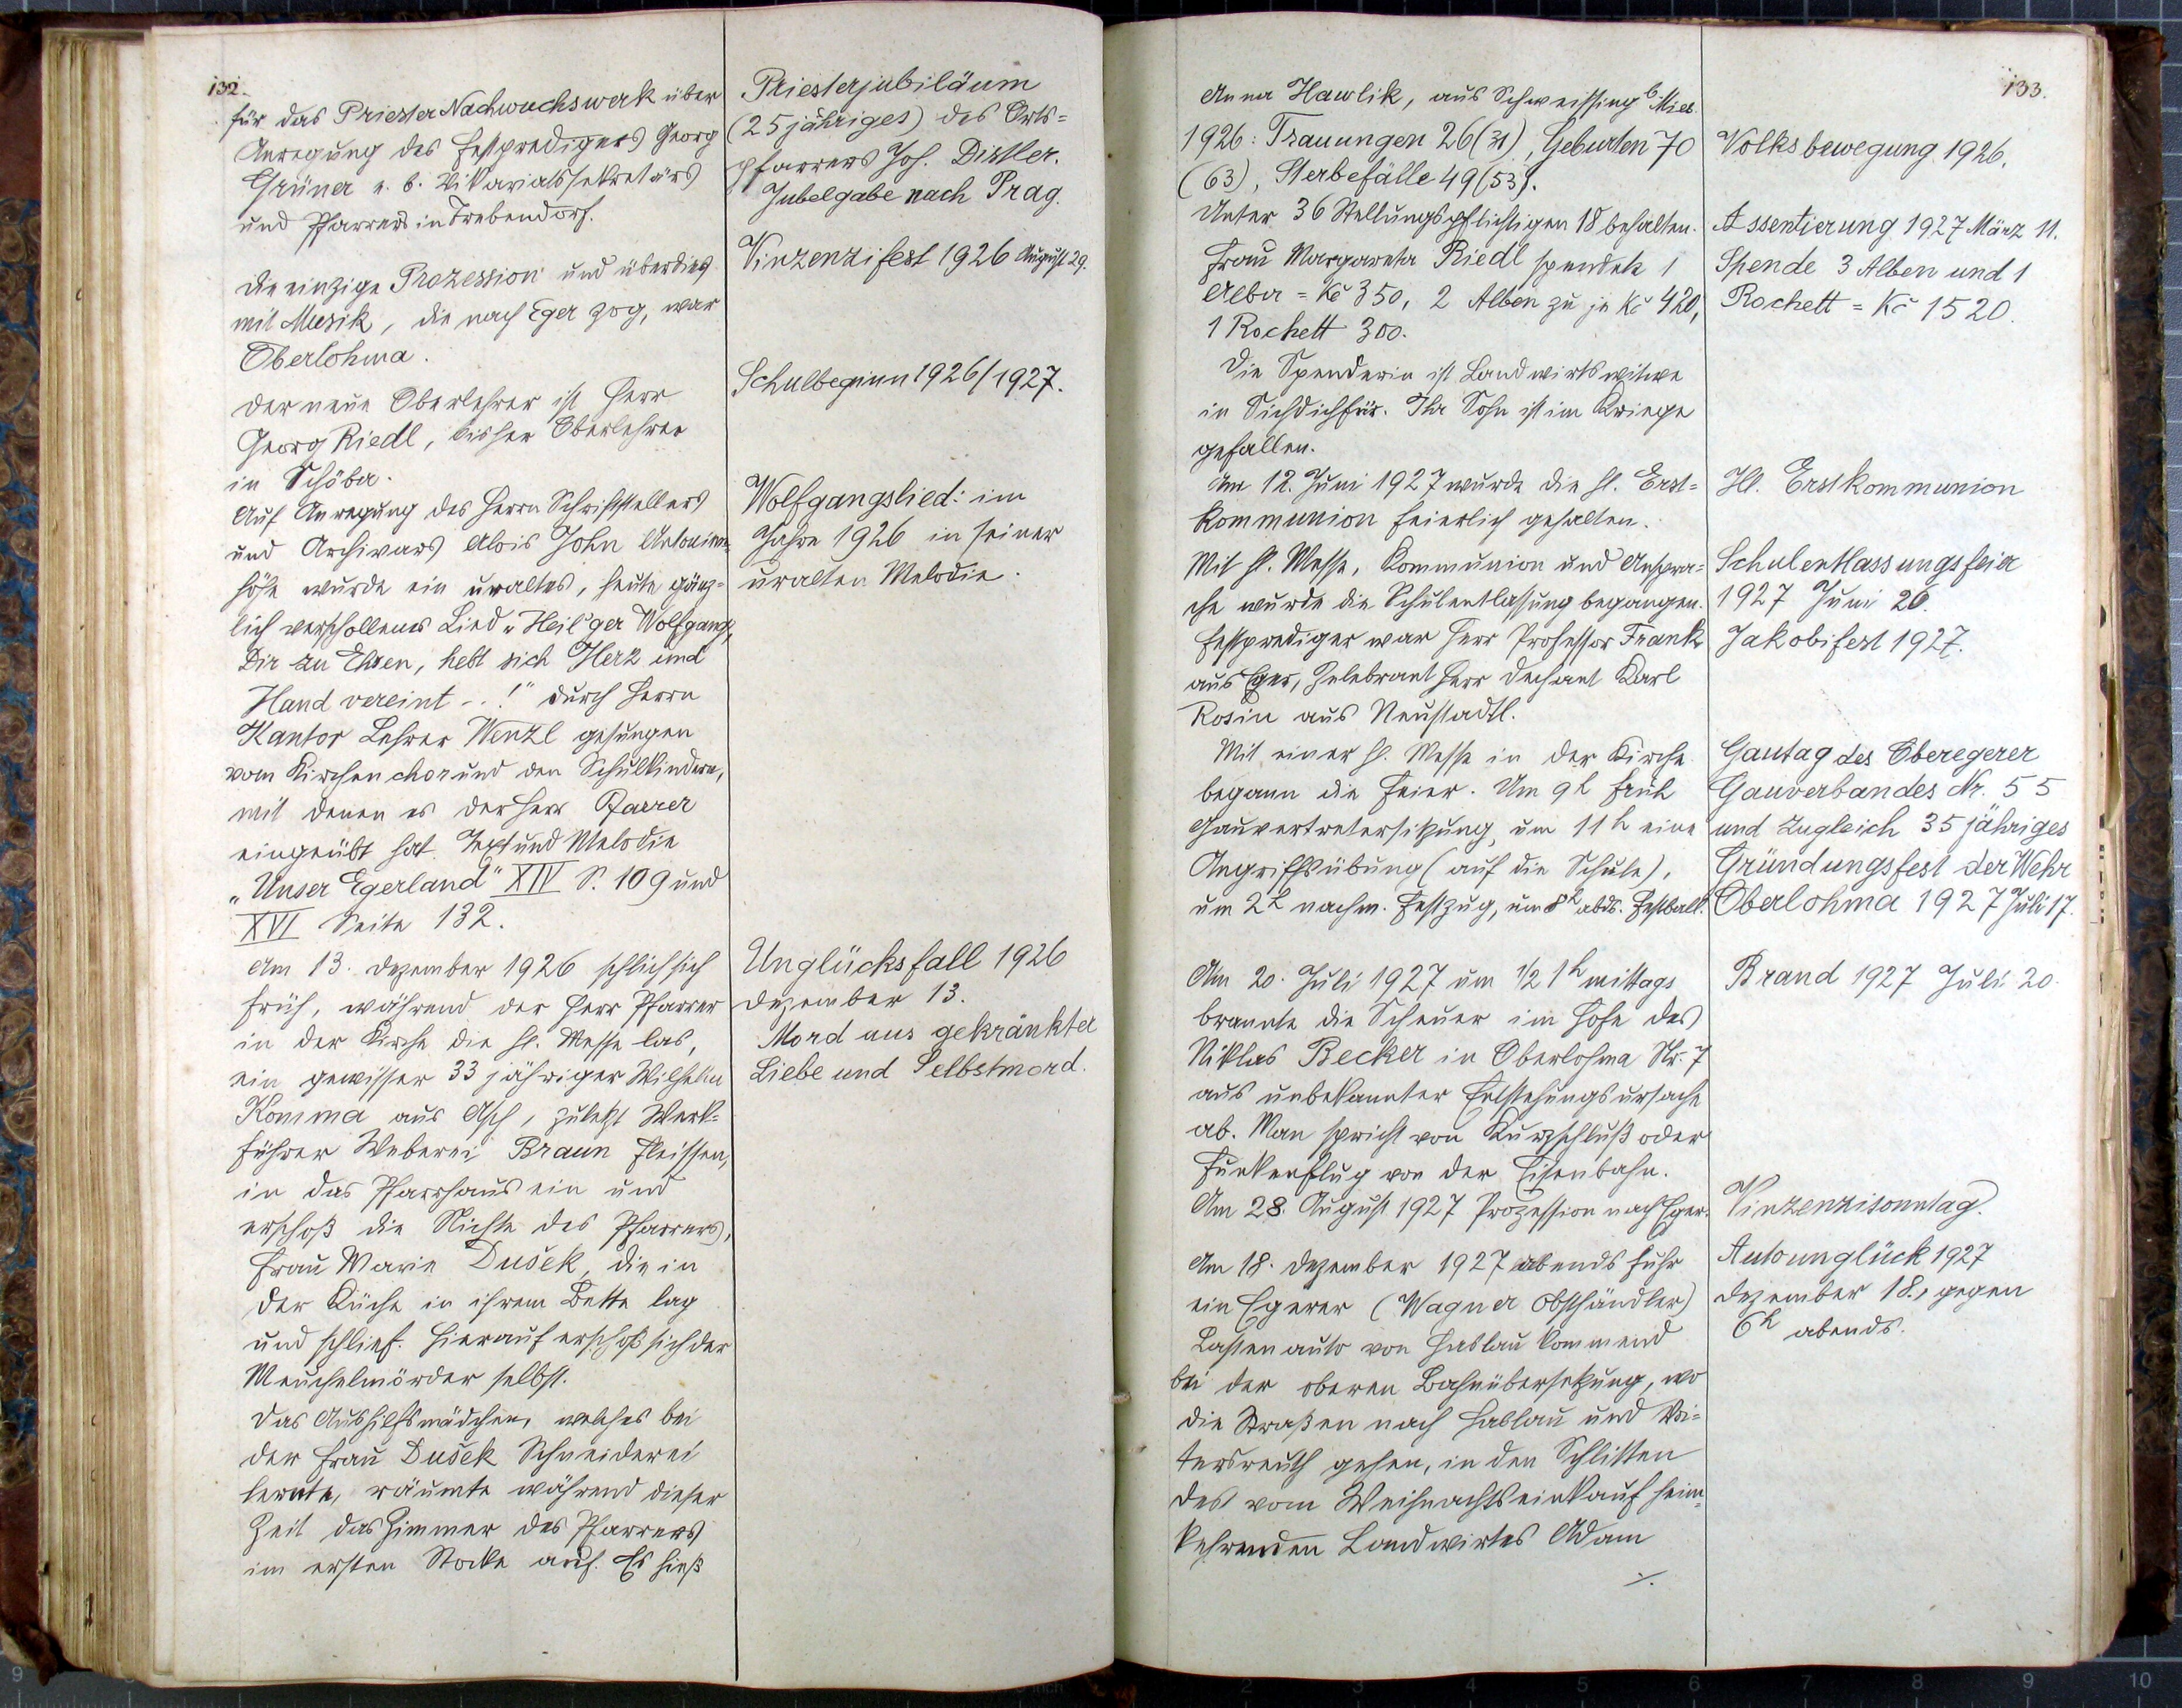 132.
für das Priester Nachwuchswerk über
Anregung des Festpredigers Georg
Grüner e. b. Vikariatssekretärs
und Pfarrers in Trebendorf.
Die einzige Prozession und überdies
mit Musik, die nach Eger zog, war
Oberlohma.
Der neue Oberlehrer ist Herr
Georg Riedl, bisher Oberlehrer
in Schöba.
Auf Anregung des Herrn Schriftstellers
und Archivars Alois John Antonien-
höhe wurde ein uraltes, heute gänz-
lich verschollenes Lied „Heil'ger Wolfgang,
Dir zu Ehren, hebt sich Herz und
Hand vereint -..!" durch Herrn
Kantor Lehrer Wenzl gesungen
vom Kirchenchor und den Schulkindern,
mit denen es der Herr Pfarrer
eingeübt hat. Text und Melodie
„Unser Egerland" XIV S. 109 und
XVI Seite 132.
Am 13. Dezember 1926 schlich sich
früh, während der Herr Pfarrer
in der Kirche die hl. Messe las,
ein gewisser 33 jähriger Wilhelm
Komma aus Asch, zuletzt Werk-
führer Weberei Braun Fleissen,
in das Pfarrhaus ein und
erschoß die Nichte des Pfarrers,
Frau Marie Dušek, die in
der Küche in ihrem Bette lag
und schlief. Hierauf erschoß sich der
Meuchelmörder selbst.
Das Aushilfsmädchen, welches bei
der Frau Dušek Schneiderei
lernte, räumte während dieser
Zeit das Zimmer des Pfarrers
im ersten Stocke auf. Es hieß
Priesterjubiläum
(25 jähriges) des Orts-
pfarrers Jos. Distler.
Jubelgabe nach Prag.
Vinzenzifest 1926 August 29.
Schulbeginn 1926/1927.
Wolfgangslied: im
Jahre 1926 in seiner
uralten Melodie.
Unglücksfall 1926
Dezember 13.
Mord aus gekränkter
Liebe und Selbstmord.
133.
Anna Hawlik, aus Schweissing b. Mies.
1926: Trauungen 26 (31), Geburten 70
(63), Sterbefälle 49 (53).
Unter 36 Stellungspflichtigen 18 behalten.
Frau Margareta Riedl spendete 1
Alba = Kč 350, 2 Alben zu je Kč 420,
1 Rochett 300.
Die Spenderin ist Landwirtswitwe
in Sichdichfür. Ihr Sohn ist im Kriege
gefallen.
Am 12. Juni 1927 wurde die hl. Erst-
kommunion feierlich gehalten.
Mit hl. Messe, Kommunion und Anspra-
che wurde die Schulentlassung begangen.
Festprediger war Herr Professor Frank
aus Eger, Zelebrant Herr Dechant Karl
Rosin aus Neustadtl.
Mit einer hl. Messe in der Kirche
begann die Feier. Um 9h früh
Gauvertretersitzung, um 11h eine
Angriffsübung (auf die Schule),
um 2h nachm. Festzug, um 8h abds. Festball.
Am 20. Juli 1927 um ½ 1h mittags
brannte die Scheuer im Hofe des
Niklas Becker in Oberlohma Nr. 7
aus unbekannter Entstehungsursache
ab. Man spricht von Kurzschluß oder
Funkenflug von der Eisenbahn.
Am 28. August 1927 Prozession nach Eger.
Am 18. Dezember 1927 abends fuhr
ein Egerer (Wagner Obsthändler)
Lastenauto von Haslau kommend
bei der oberen Bahnübersetzung, wo
die Straßen nach Haslau und Vo-
tersreuth gehen, in den Schlitten
des vom Weihnachtseinkauf heim-
kehrenden Landwirtes Adam
./.
Volksbewegung 1926.
Assentierung 1927 März 11.
Spende 3 Alben und 1
Rochett = Kč 1520.
Hl. Erstkommunion
Schulentlassungsfeier
1927 Juni 26.
Jakobifest 1927.
Gautag des Oberegerer
Gauverbandes Nr. 55
und zugleich 35 jähriges
Gründungsfest der Wehr
Oberlohma 1927 Juli 17.
Brand 1927 Juli 20.
Vinzenzisonntag.
Autounglück 1927
Dezember 18., gegen
6h abends.